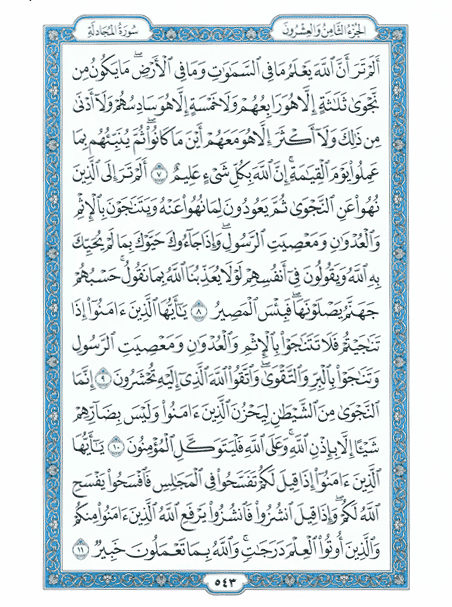 الجزء الثامن والعشرون
سورة المجادلة
أَلَمْ تَرَ أَنَّ ٱللَّهَ يَعْلَمُ مَا فِى ٱلسَّمَٰوَٰتِ وَمَا فِى ٱلْأَرْضِ ۖ مَا يَكُونُ مِن
نَّجْوَىٰ ثَلَٰثَةٍ إِلَّا هُوَ رَابِعُهُمْ وَلَا خَمْسَةٍ إِلَّا هُوَ سَادِسُهُمْ وَلَآ أَدْنَىٰ
مِن ذَٰلِكَ وَلَآ أَكْثَرَ إِلَّا هُوَ مَعَهُمْ أَيْنَ مَا كَانُوا۟ ۖ ثُمَّ يُنَبِّئُهُم بِمَا
عَمِلُوا۟ يَوْمَ ٱلْقِيَٰمَةِ ۚ إِنَّ ٱللَّهَ بِكُلِّ شَىْءٍ عَلِيمٌ ٧ أَلَمْ تَرَ إِلَى ٱلَّذِينَ
نُهُوا۟ عَنِ ٱلنَّجْوَىٰ ثُمَّ يَعُودُونَ لِمَا نُهُوا۟ عَنْهُ وَيَتَنَٰجَوْنَ بِٱلْإِثْمِ
وَٱلْعُدْوَٰنِ وَمَعْصِيَتِ ٱلرَّسُولِ ۖ وَإِذَا جَآءُوكَ حَيَّوْكَ بِمَا لَمْ يُحَيِّكَ
بِهِ ٱللَّهُ وَيَقُولُونَ فِىٓ أَنفُسِهِمْ لَوْلَا يُعَذِّبُنَا ٱللَّهُ بِمَا نَقُولُ ۚ حَسْبُهُمْ
جَهَنَّمُ يَصْلَوْنَهَا ۖ فَبِئْسَ ٱلْمَصِيرُ ٨ يَٰٓأَيُّهَا ٱلَّذِينَ ءَامَنُوٓا۟ إِذَا
تَنَٰجَيْتُمْ فَلَا تَتَنَٰجَوْا۟ بِٱلْإِثْمِ وَٱلْعُدْوَٰنِ وَمَعْصِيَتِ ٱلرَّسُولِ
وَتَنَٰجَوْا۟ بِٱلْبِرِّ وَٱلتَّقْوَىٰ ۖ وَٱتَّقُوا۟ ٱللَّهَ ٱلَّذِىٓ إِلَيْهِ تُحْشَرُونَ ٩ إِنَّمَا
ٱلنَّجْوَىٰ مِنَ ٱلشَّيْطَٰنِ لِيَحْزُنَ ٱلَّذِينَ ءَامَنُوا۟ وَلَيْسَ بِضَآرِّهِمْ
شَيْـًٔا إِلَّا بِإِذْنِ ٱللَّهِ ۚ وَعَلَى ٱللَّهِ فَلْيَتَوَكَّلِ ٱلْمُؤْمِنُونَ ١٠ يَٰٓأَيُّهَا
ٱلَّذِينَ ءَامَنُوٓا۟ إِذَا قِيلَ لَكُمْ تَفَسَّحُوا۟ فِى ٱلْمَجَٰلِسِ فَٱفْسَحُوا۟ يَفْسَحِ
ٱللَّهُ لَكُمْ ۖ وَإِذَا قِيلَ ٱنشُزُوا۟ فَٱنشُزُوا۟ يَرْفَعِ ٱللَّهُ ٱلَّذِينَ ءَامَنُوا۟ مِنكُمْ
وَٱلَّذِينَ أُوتُوا۟ ٱلْعِلْمَ دَرَجَٰتٍ ۚ وَٱللَّهُ بِمَا تَعْمَلُونَ خَبِيرٌ ١١
٥٤٣